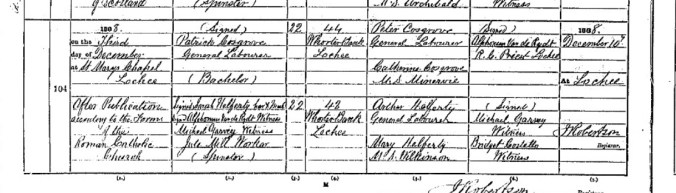 of Scotland
(Spinster)
M.S. Archibald
Witness
1888. (Signed) 22 44 Peter Cosgrove (Signed) 1888.
on the Third Patrick Cosgrove Whorterbank General Labourer Alphonsus Van de Rydt December 10th
day of December General Labourer Lochee R.C. Priest Lochee
at St Marys Chapel Catherine Cosgrove
Lochee (Bachelor) M.S. Minervie at Lochee
104
After Publication Sarah Hafferty 22 42 Arthur Hafferty (Signed)
according to the Forms Alphonsus Van de Rydt Witness Whorterbank General Labourer Michael Garvey
of the Michael Garvey Witness Lochee Witness J Robertson
Roman Catholic Jute Mill Worker Mary Hafferty Bridget Costello Registrar.
Church (Spinster) M.S. Wilkinson Witness
M
J Robertson
Registrar